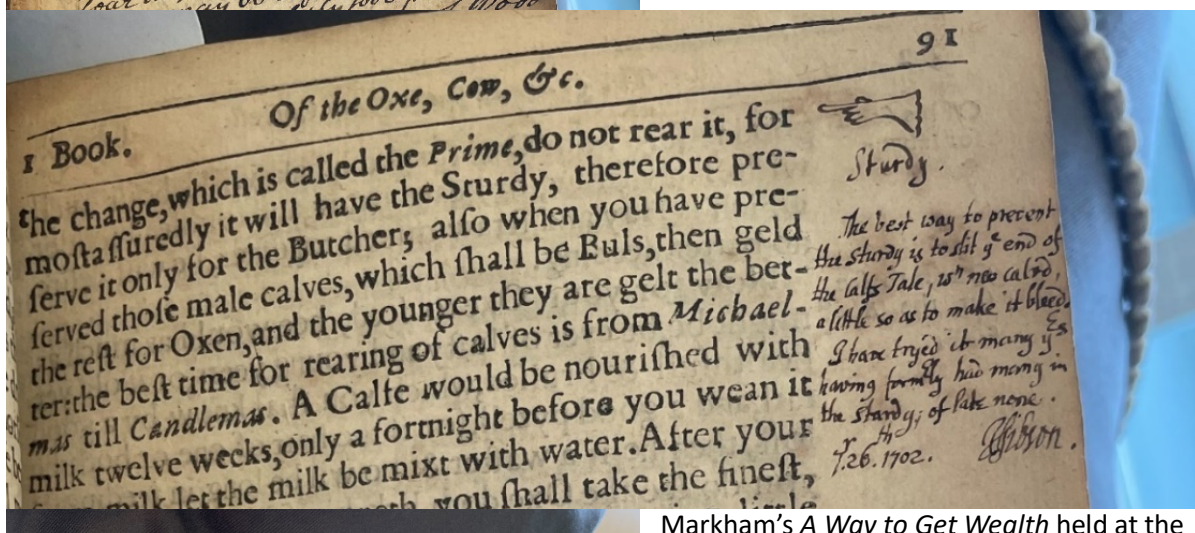 91
Of the Oxe, Cow, &c.
1 Book.
the change,which is called the Prime,do not rear it, for
moſt aſſuredly it will have the Sturdy, therefore pre-
ſerve it only for the Butcher; alſo when you have pre-
ſerved thoſe male calves,which ſhall be Buls,then geld
the reſt for Oxen,and the younger they are gelt the bet-
ter:the beſt time for rearing of calves is from Michael-
mas till Candlemas. A Calfe would be nouriſhed with
milk twelve weeks,only a fortnight before you wean it
milk let the milk be mixt with water.After your
you ſhall take the fineſt,
Sturdy.
The best way to prevent
the sturdy is to slit yᵉ end of
the Calfs Tale, wⁿ new calvd,
a little so as to make it bleed.
I have tryed it many
having formly had many in
the sturdy; of late none.
26.th 1702. Gibson.
Markham's A Way to Get Wealth held at the